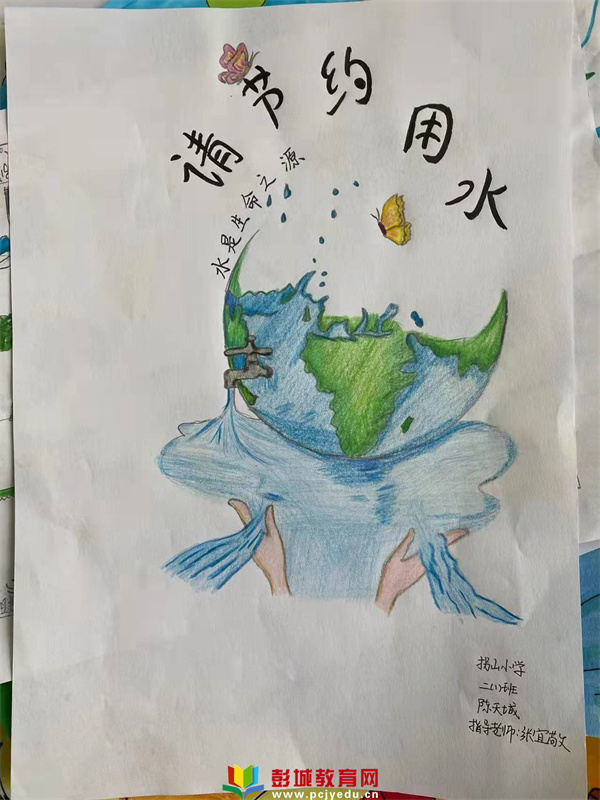 请节约用水
水是生命之源
拐山小学
二(1)班
陈天城
指导老师:张宜
彭城教育网
www.pcjyedu.cn